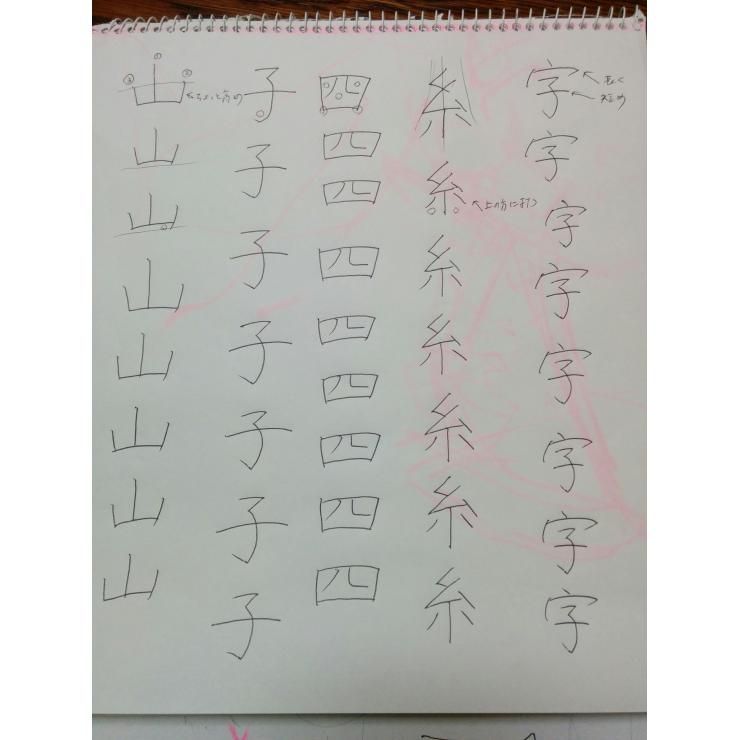 字字字字字字字字
長く
短め
糸糸糸糸糸糸糸
四四四四四四四四四
子子子子子子子
山山山山山山山山